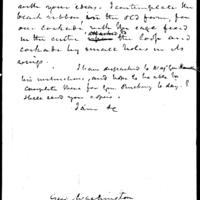 with your ideas. I contemplate the
black ribbon, in the old form, for
our cockade with the eagle fixed
in the centre attached to the loop and
cockade by small holes in its
wings.
I have despatched to Maj Gen
his instructions, and hope to be able to
complete those for Gen Pinckney to day. I
shall send you copies.
I am &c
Geo: Washington